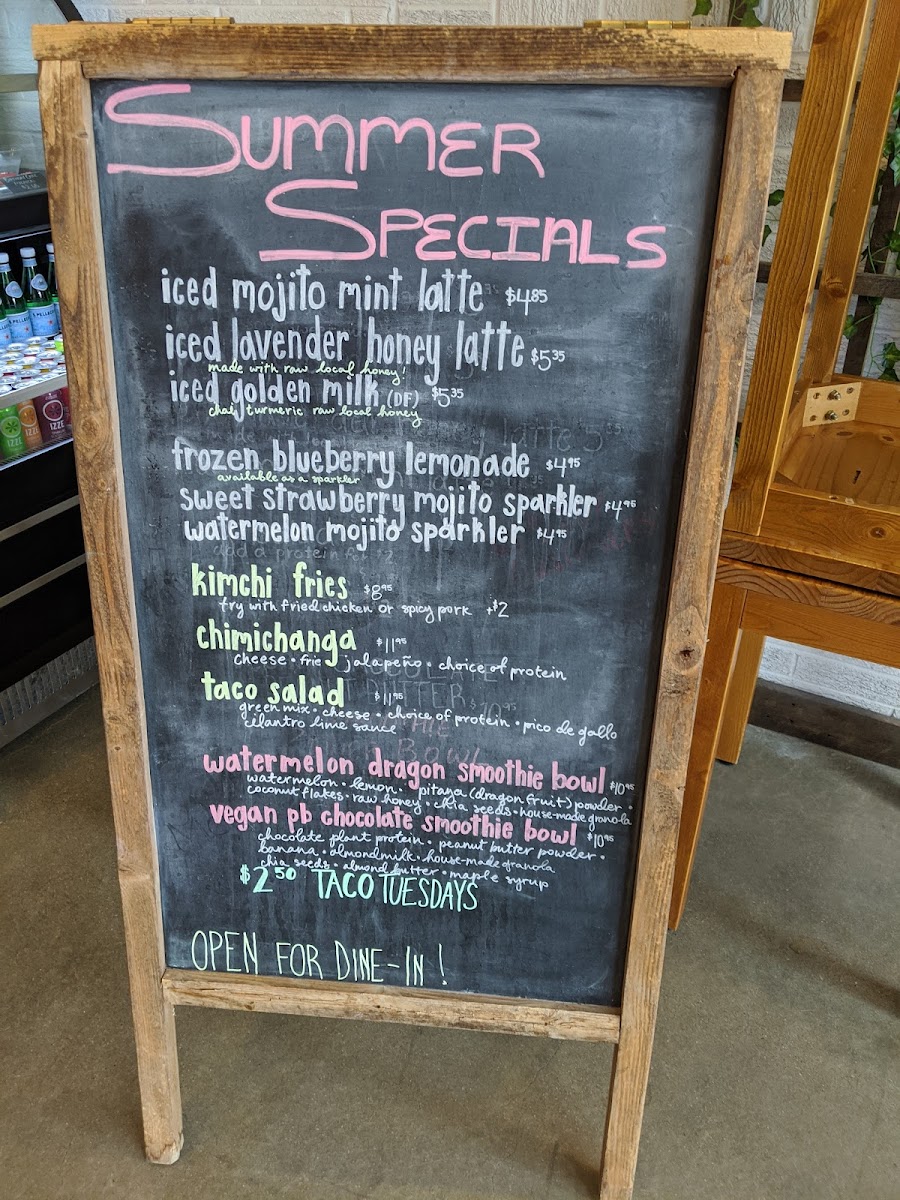 SUMMER
SPECIALS
iced mojito mint latte $4.85
iced lavender honey latte $5.35
made with raw local honey!
iced golden milk (DF) $5.35
chai, turmeric raw local honey
frozen blueberry lemonade $4.95
available as a sparkler
sweet strawberry mojito sparkler $4.95
watermelon mojito sparkler $4.95
add a protein for $2
kimchi fries $8.95
try with fried chicken or spicy pork +$2
chimichanga $11.95
cheese • jalapeño • choice of protein
taco salad $11.95
green mix • cheese • choice of protein • pico de gallo
cilantro lime sauce
watermelon dragon smoothie bowl $10.95
watermelon • lemon • pitaya (dragon fruit) powder •
coconut flakes • raw honey • chia seeds • house-made granola
vegan pb chocolate smoothie bowl $10.95
chocolate plant protein • peanut butter powder •
banana • almond milk • house-made granola
chia seeds • almond butter • maple syrup
$2.50 TACO TUESDAYS
OPEN FOR DINE-IN!
S. PELLEGRINO
IZZE
IZZE
IZZE